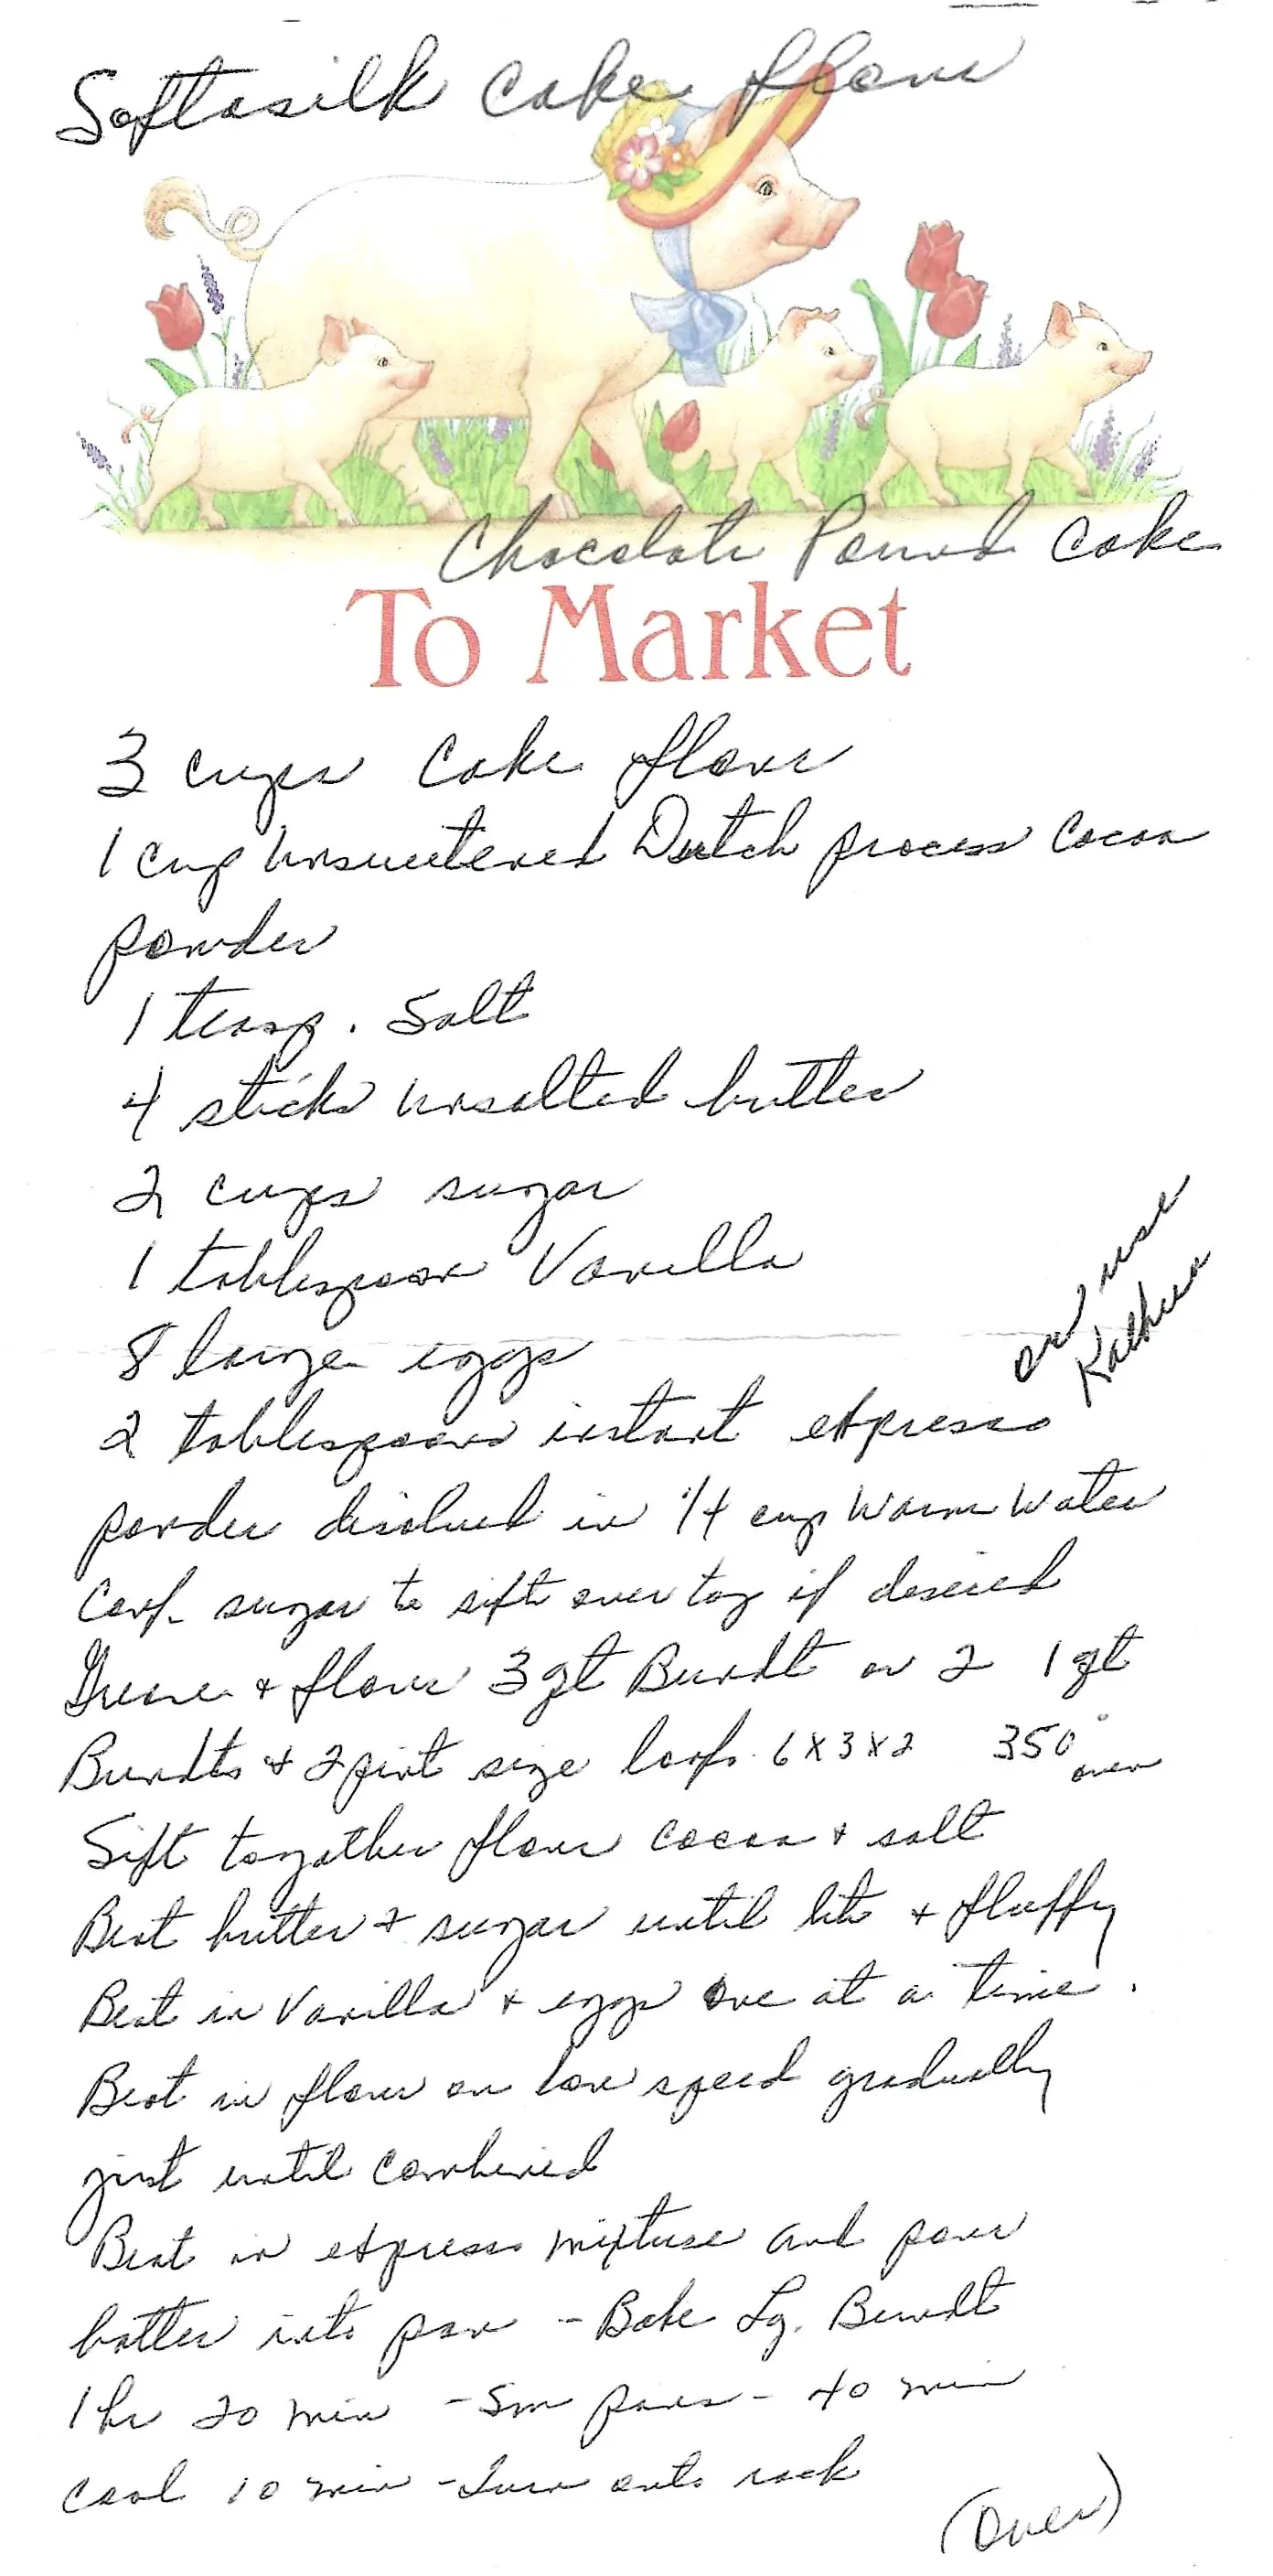 Softasilk Cake flour
Chocolate Pound Cake
To Market
3 cups Cake flour
1 cup Unsweetened Dutch process Cocoa
powder
1 teasp. Salt
4 sticks Unsalted butter
2 cups sugar
1 tablespoon Vanilla
8 large eggs
or use
Kalhua
2 tablespoons instant expresso
powder disolved in 1/4 cup Warm Water
Conf. sugar to sift over top if desired
Grease & flour 3 qt Bundt or 2 1 qt
Bundts & 2 pint size loafs 6x3x2 350°
oven
Sift together flour cocoa & salt
Beat butter & sugar until lite & fluffy
Beat in Vanilla & eggs one at a time.
Beat in flour on low speed gradually
just until combined
Beat in expresso mixture and pour
batter into pan - Bake Lg. Bundt
1 hr 20 min - Sm pans - 40 min
Cool 10 min - Turn onto rack
(Over)